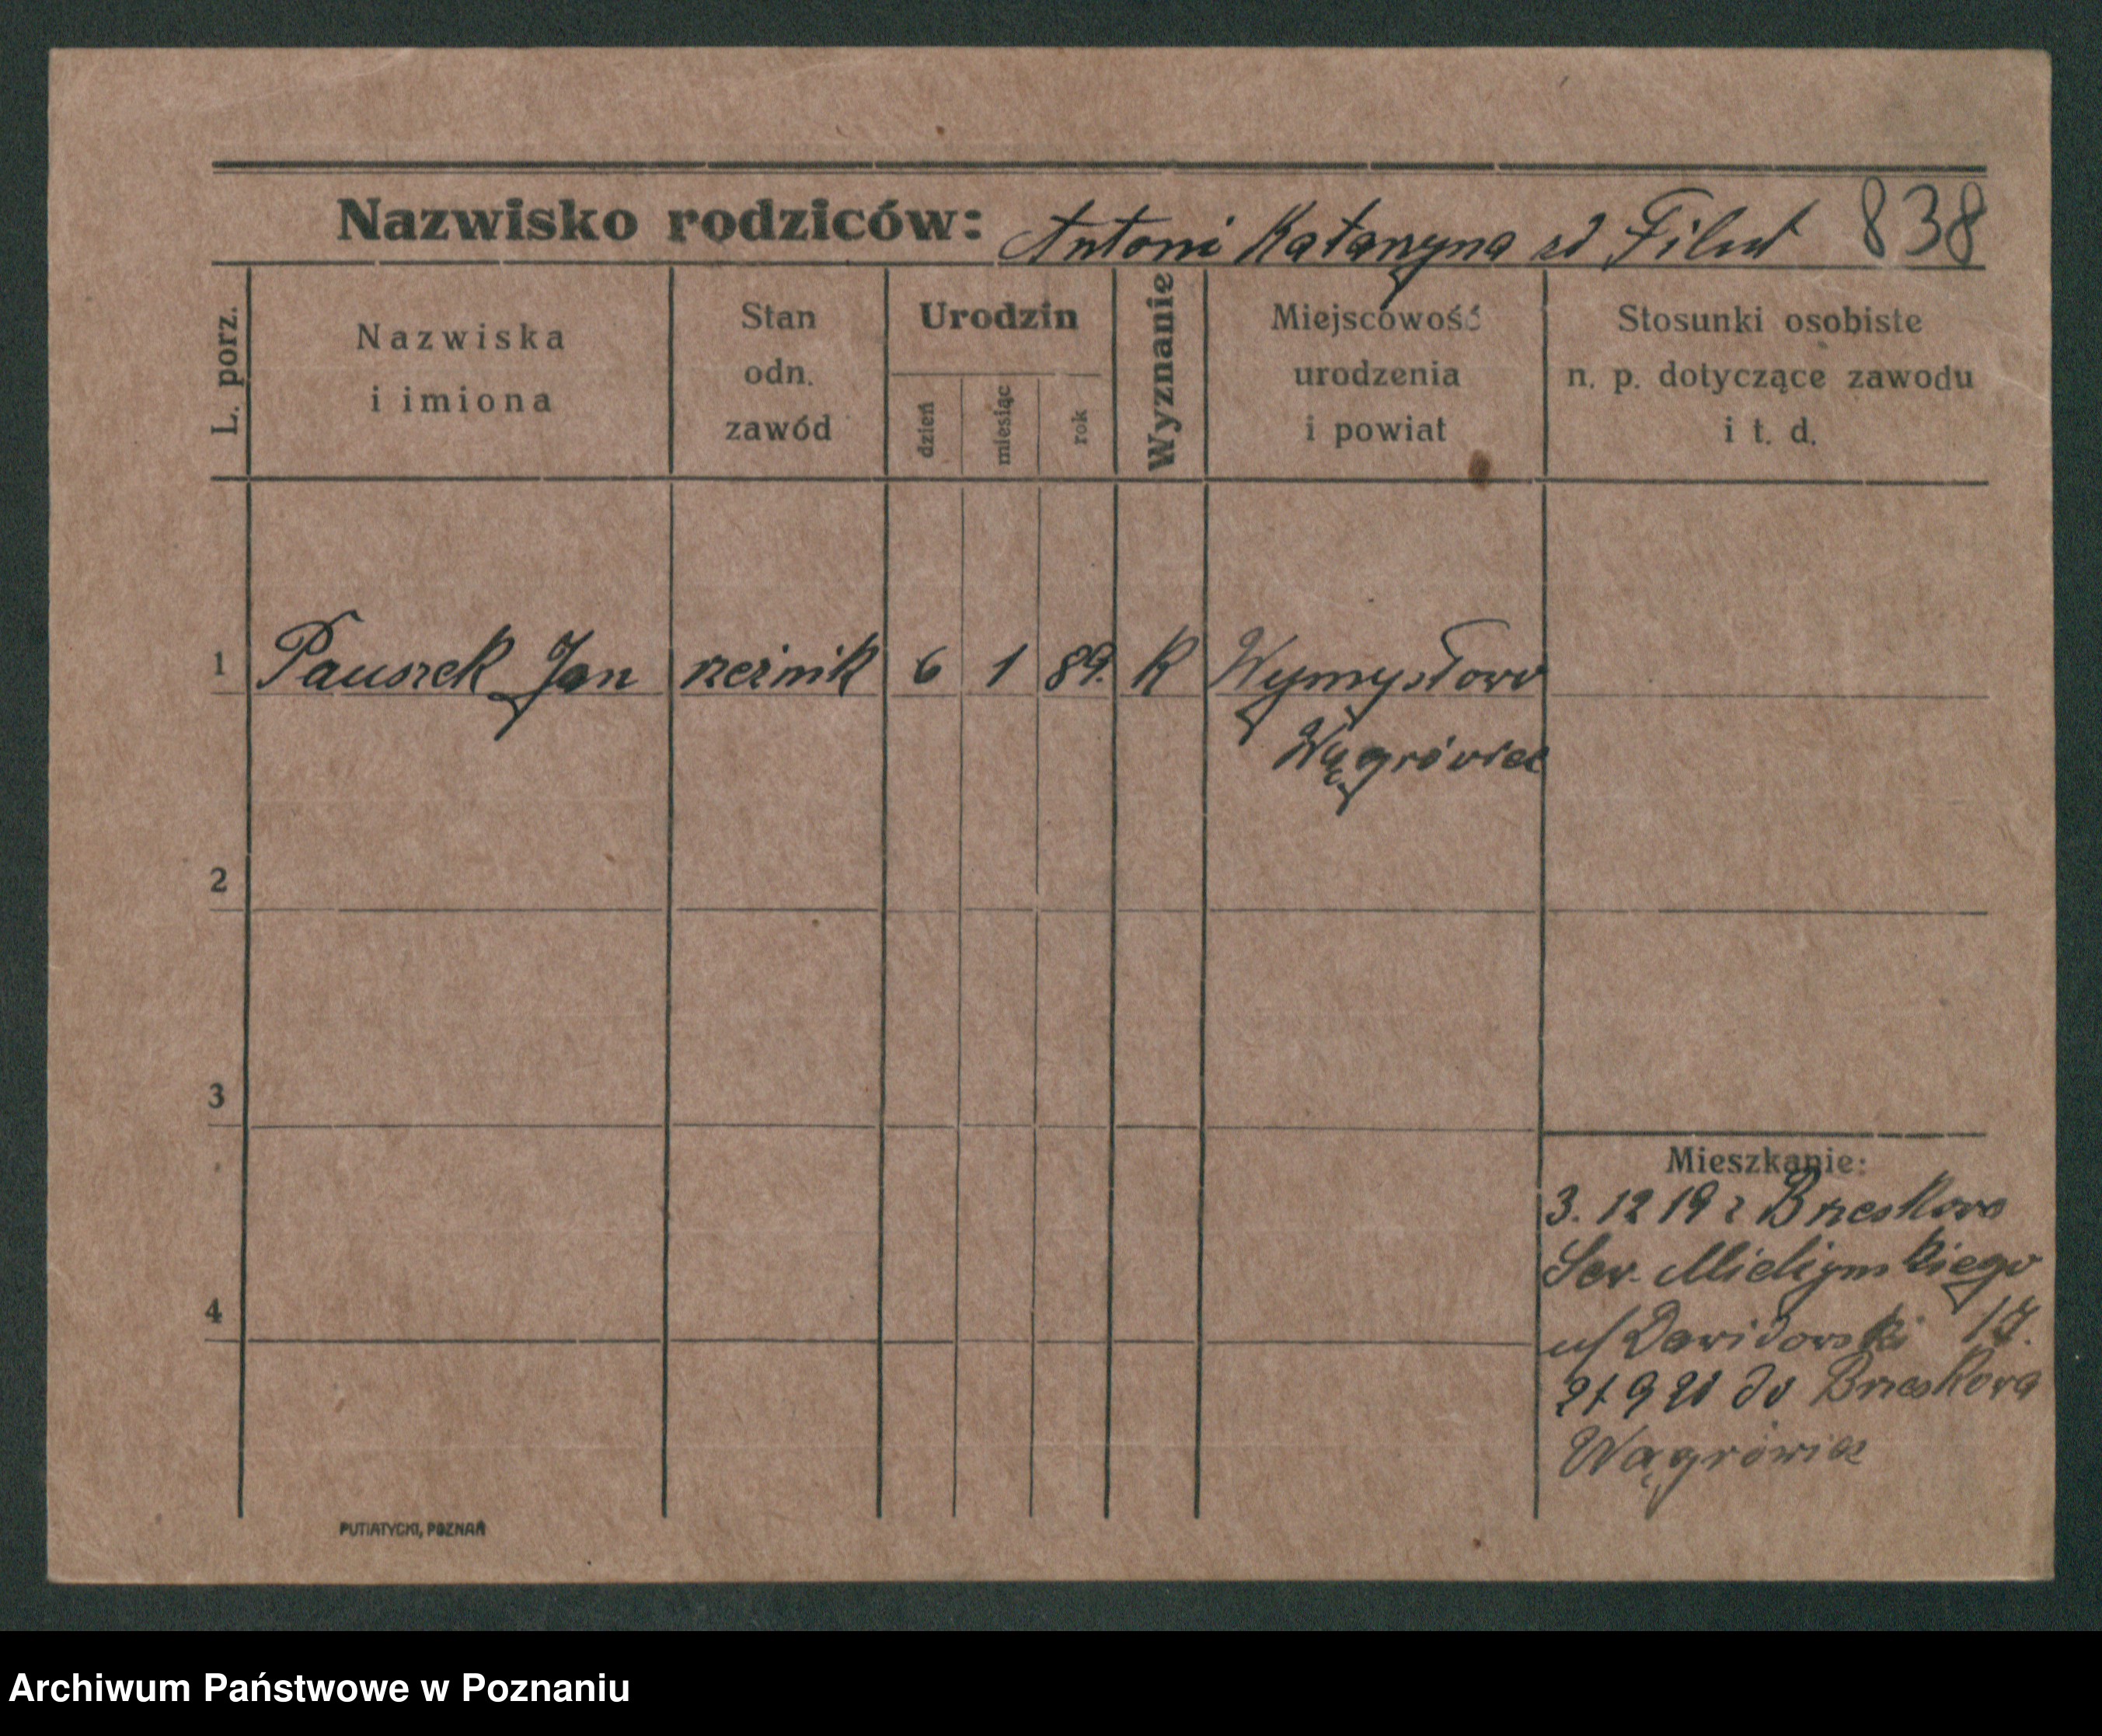 Nazwisko rodziców: Antoni Katarzyna zd Filut 838
L. porz.
Nazwiska
i imiona
Stan
odn.
zawód
Urodzin
dzień
miesiąc
rok
Wyznanie
Miejscowość
urodzenia
i powiat
Stosunki osobiste
n. p. dotyczące zawodu
i t. d.
1 Pauszek Jan rzeźnik 6 1 89. K Wymysłowo
Wągrówiec
2
3
4
Mieszkanie:
3. 12 19 z Brzeskowo
Sew. Mielżyńskiego
u/ Dawidowski 17.
21 9 20 do
Wągrówiec
PUTIATYCKI, POZNAŃ
Archiwum Państwowe w Poznaniu